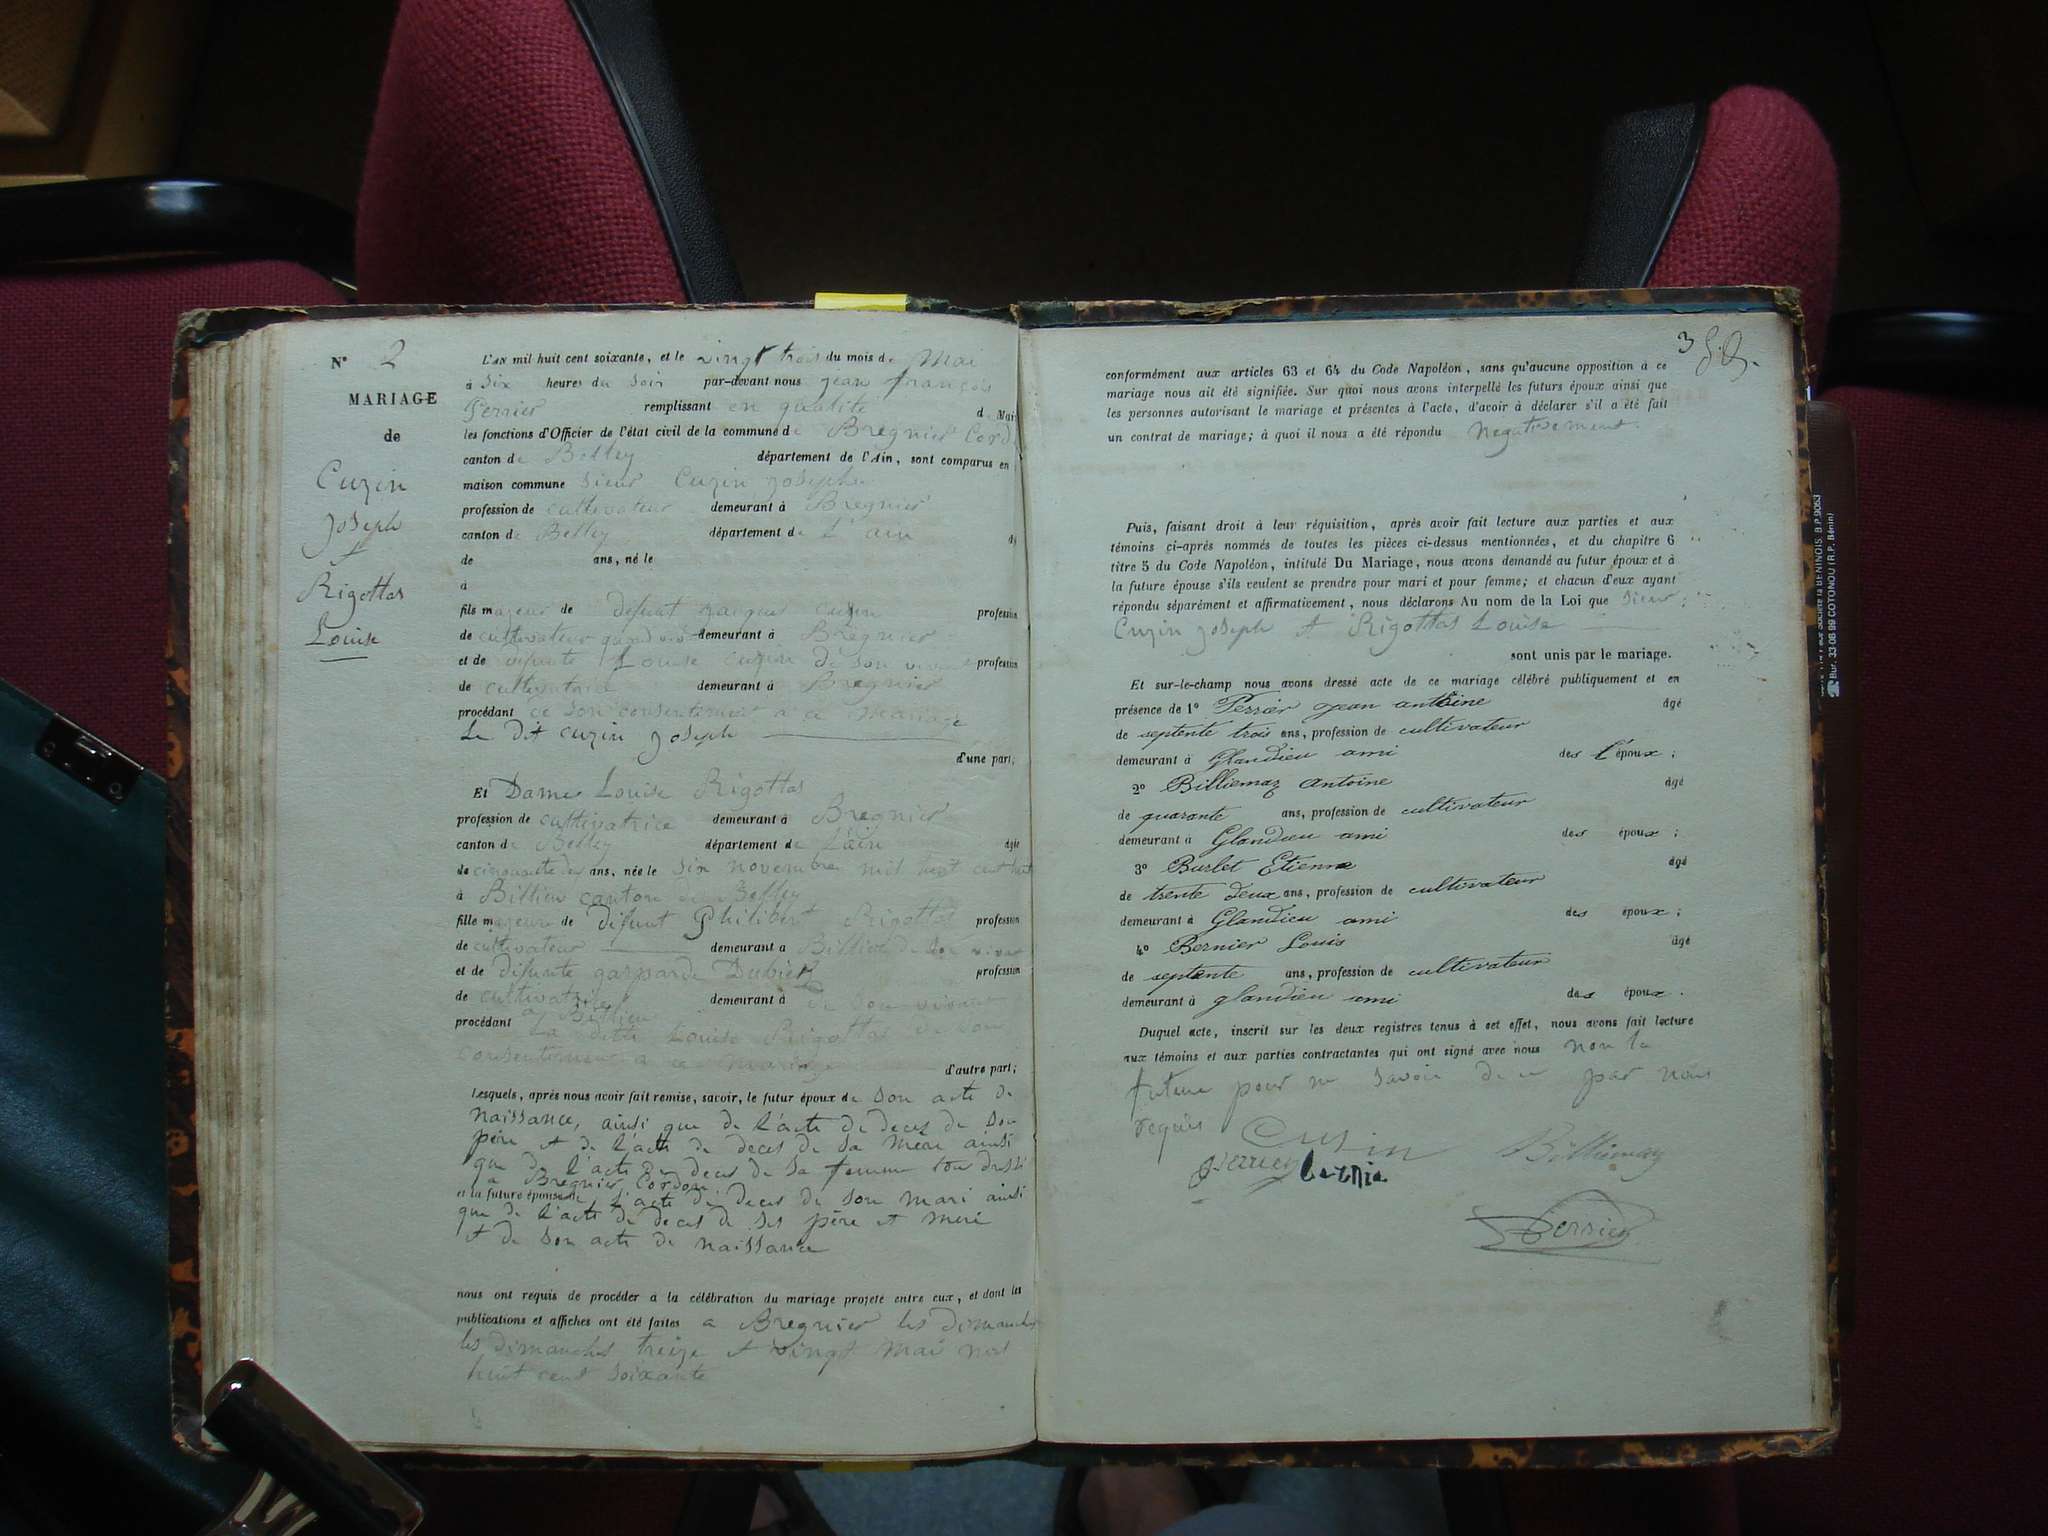 N° 2
MARIAGE
de
Cuzin
Joseph
et
Rigottas
Louise
L'AN mil huit cent soixante, et le vingt trois du mois de Mai
à six heures du soir par-devant nous jean françois
Perrier remplissant en qualité d Mai
les fonctions d'Officier de l'état civil de la commune de Bregnier Cord
canton de Belley département de l'Ain, sont comparus en
maison commune sieur Cuzin joseph
profession de cultivateur demeurant à Bregnier
canton de Belley département de L'ain
de ans, né le
à
fils majeur de défunt Cuzin profession
de cultivateur demeurant à Bregnier
et de défunte Louise cuzin de son vivant profession
de cultivatrice demeurant à Bregnier
procédant de son consentement a ce mariage
Le dit cuzin joseph
d'une part;
Et Dame Louise Rigottas
profession de cultivatrice demeurant à Bregnier
canton de Belley département de L'ain âgée
de cinquante ans, née le six novembre mil huit cent huit
à Billieu canton de Belley
fille majeure de défunt Philibert Rigottas profession
de cultivateur demeurant a Billieu
et de défunte gasparde Dubier profession
de cultivatrice demeurant à de son vivant
a Billieu
procédant La ditte Louise Rigottas de son
consentement a ce mariage
d'autre part;
Lesquels, après nous avoir fait remise, savoir, le futur époux de son acte de
naissance, ainsi que de l'acte de deces de son
père et de l'acte de deces de sa mère ainsi
que de l'acte de deces de sa femme
a Bregnier Cordon
et la future épouse de l'acte de deces de son mari ainsi
que de l'acte de deces de ses père et mère
et de son acte de naissance
nous ont requis de procéder à la célébration du mariage projeté entre eux, et dont les
publications et affiches ont été faites a Bregnier les dimanches
les dimanches treize et vingt Mai mil
huit cent soixante
3
conformément aux articles 63 et 64 du Code Napoléon, sans qu'aucune opposition à ce
mariage nous ait été signifiée. Sur quoi nous avons interpellé les futurs époux ainsi que
les personnes autorisant le mariage et présentes à l'acte, d'avoir à déclarer s'il a été fait
un contrat de mariage; à quoi il nous a été répondu négativement.
Puis, faisant droit à leur réquisition, après avoir fait lecture aux parties et aux
témoins ci-après nommés de toutes les pièces ci-dessus mentionnées, et du chapitre 6
titre 5 du Code Napoléon, intitulé Du Mariage, nous avons demandé au futur époux et à
la future épouse s'ils veulent se prendre pour mari et pour femme; et chacun d'eux ayant
répondu séparément et affirmativement, nous déclarons Au nom de la Loi que sieur
Cuzin joseph et Rigottas Louise
sont unis par le mariage.
Et sur-le-champ nous avons dressé acte de ce mariage célébré publiquement et en
présence de 1° Perrier jean antoine âgé
de septente trois ans, profession de cultivateur
demeurant à Glandieu ami des l'époux;
2° Billiemaz Antoine âgé
de quarante ans, profession de cultivateur
demeurant à Glandieu ami des époux;
3° Burlet Etienne âgé
de trente deux ans, profession de cultivateur
demeurant à Glandieu ami des époux;
4° Bernier Louis âgé
de septente ans, profession de cultivateur
demeurant à glandieu ami des époux.
Duquel acte, inscrit sur les deux registres tenus à cet effet, nous avons fait lecture
aux témoins et aux parties contractantes qui ont signé avec nous non la
future pour ne savoir de ce par nous
requis Cusin Billiemaz
Perrier
Perrier